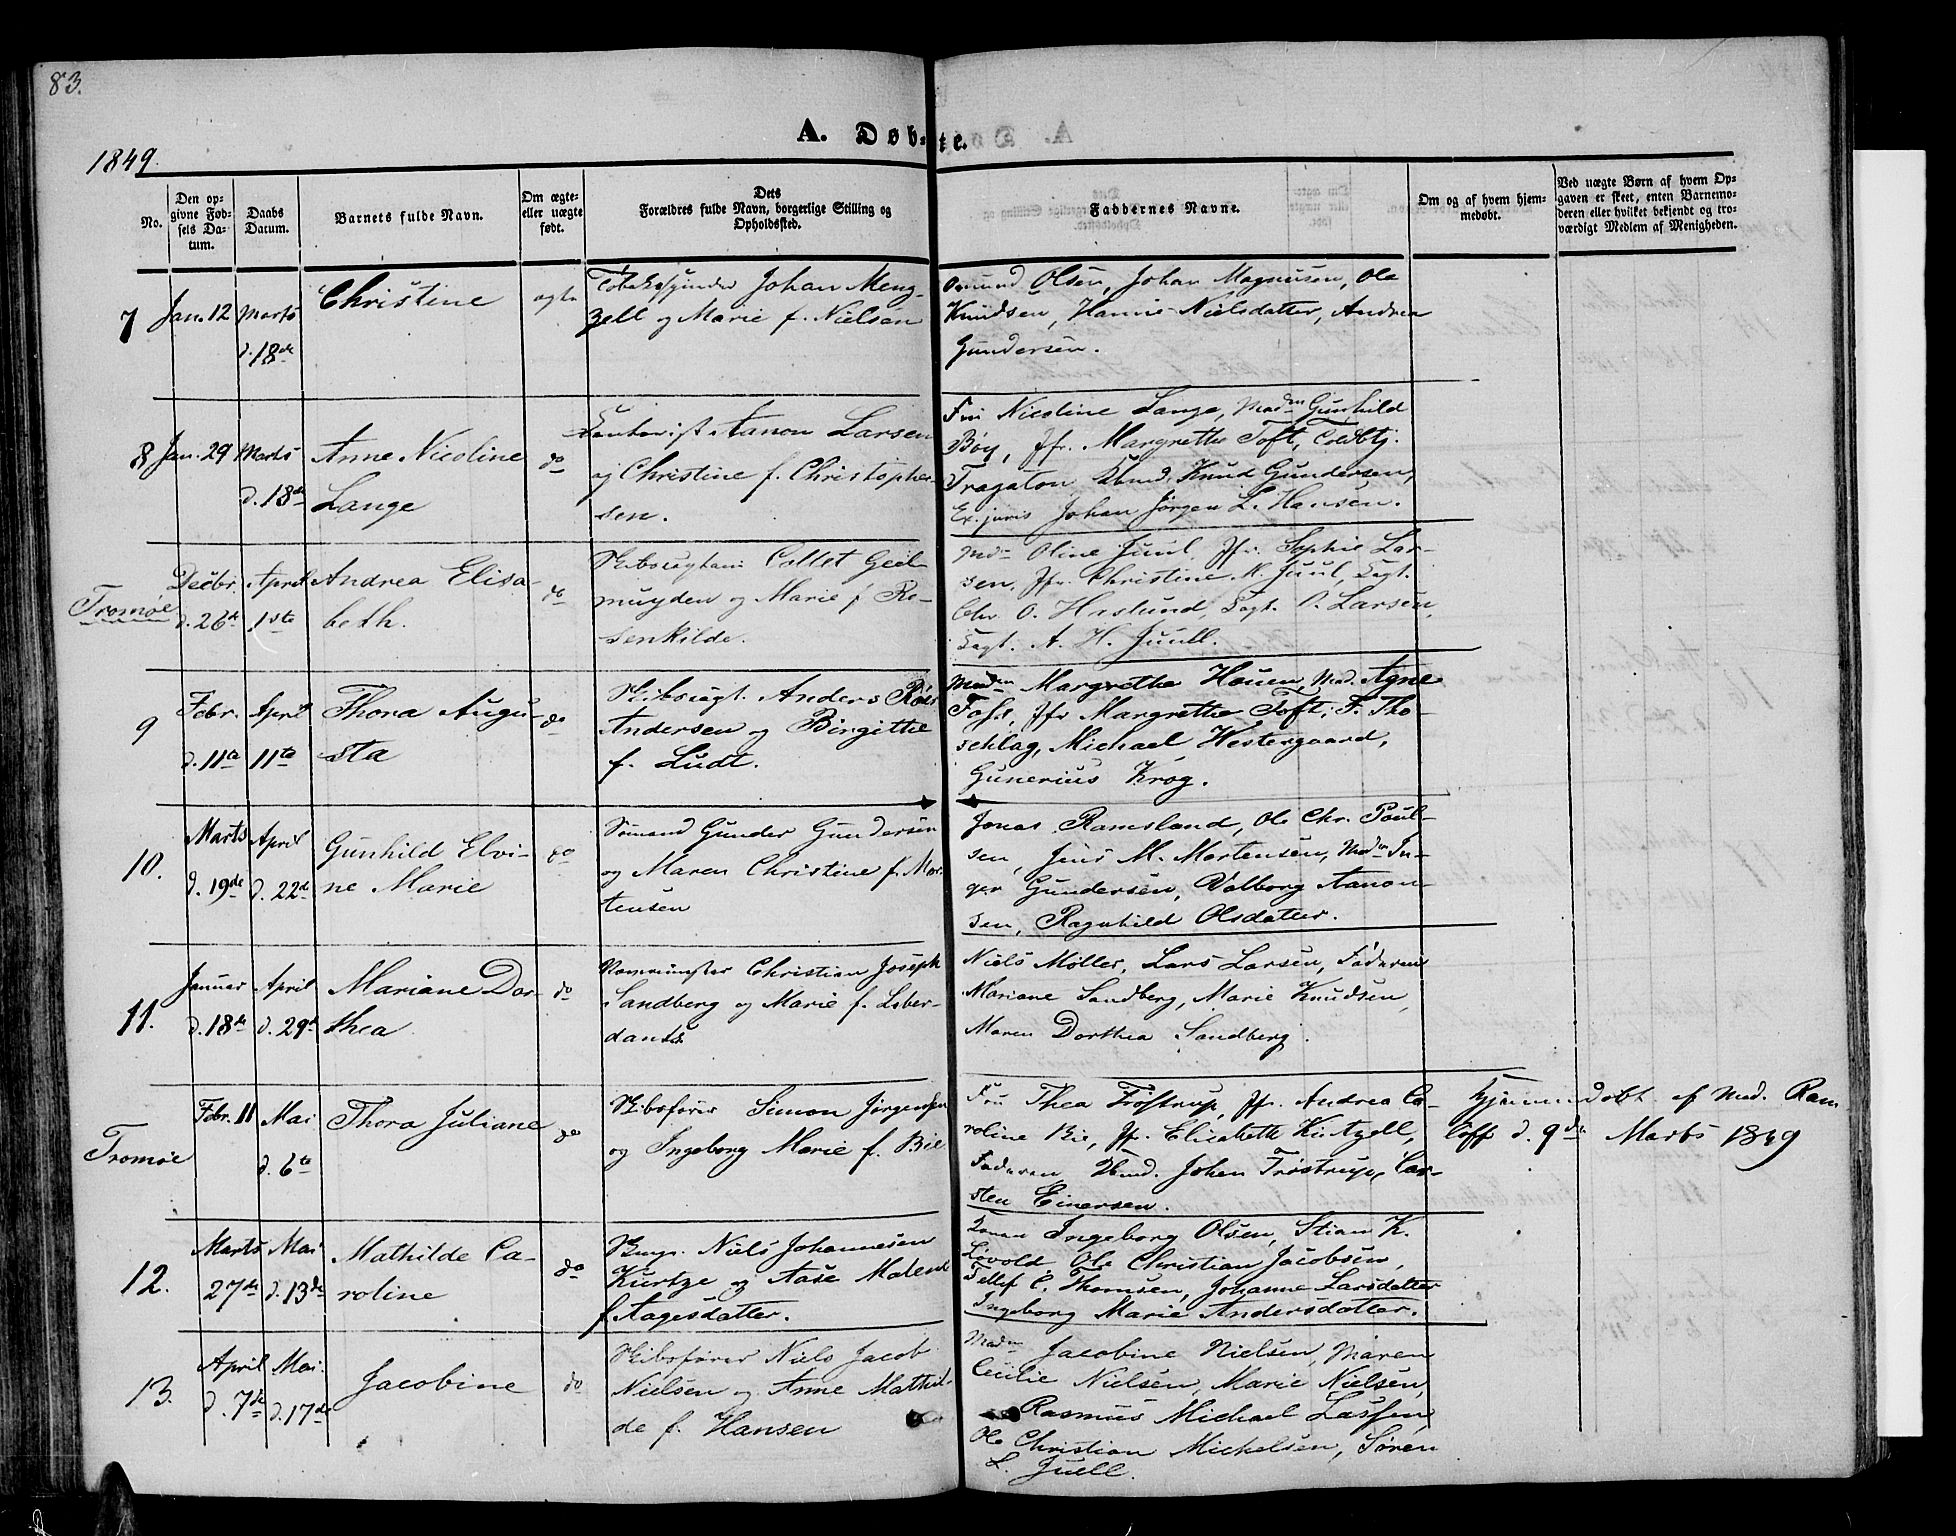 83.
A. Døbte.
1849.
No.
Den opgivne Fødsels Datum.
Daabs Datum.
Barnets fulde Navn.
Om ægte- eller uægte født.
Dets Forældres fulde Navn, borgerlige Stilling og Opholdssted.
Faddernes Navne.
Om og af hvem hjemmedøbt.
Ved uægte Børn af hvem Opgaven er skeet, enten Barnemoderen eller hvilket bekjendt og troværdigt Medlem af Menigheden.
7
Jan. 12
Marts
d. 18de
Christine
ægte
Johan Meng-
zell og Marie f. Nielsen
Osmund Olsen, Johan Magnusen, Ole
Knudsen, Hanne Nielsdatter, Andrea
Gundersen.
8
Jan. 29
Marts
d. 18de
Anne Nicoline
Lange
do
Aanon Larsen
og Christine f. Christopher-
sen.
Fru Nicoline Lange, Madm Gunhild
Bøy, Jfr. Margrethe Toft, Toldbtj.
Tragaton, Kbmd. Knud Gundersen,
Ex. juris Johan Jørgen L. Hansen.
Tromøe
Decbr.
d. 26de
April
1ste
Andrea Elisa-
beth.
do
Skibscaptain Collet Geel-
muyden og Marie f. Ro-
senkilde.
Mdm Oline Juul, Jfr. Sophie Lar-
sen, Jfr. Christine M. Juul, Capt.
Chr. O. Haslund, Capt. O. Larsen,
Capt. A. H. Juull.
9
Febr.
d. 11te
April
11te
Thora Augu-
sta
do
Skibscapt. Anders
Andersen og Birgitthe
f. Ludt.
Madm Margrethe Houen, Mad. Agne
Jfr Margrethe Toft, F. Tho-
schlag, Michael Westergaard,
Gunerius Krog.
10.
Marts
d. 19de
April
d. 22de
Gunhild Elvi-
ne Marie
do
Sømand Gunder Gundersen
og Maren Christine f. Mor-
tensen
Jonas Ramsland, Ole Chr. Poul-
sen, Jens M. Mortensen, Madm In-
ger Gundersen, Valborg Aanon-
sen, Ragnhild Olsdatter.
11.
Januar
d. 18de
April
d. 29de
Mariane Dor-
thea
do
Christian Joseph
Sandberg og Marie f. Lober-
dants
Niels Møller, Lars Larsen, Faderen
Mariane Sandberg, Marie Knudsen,
Maren Dorthea Sandberg.
Tromøe
Febr. 11
Mai
d. 6te
Thora Juliane
do
Skibsfører Simon Jørgensen
og Ingeborg Marie f. Bie
Fru Thea Trøstrup, Jfr. Andrea Ca-
roline Bie, Jfr. Elisabeth Kintzell,
Faderen Kbmd. Johan Trøstrup, Car-
sten Einersen.
Hjemmedøbt af Mad. Ram
loff d. 9de Marts 1849
12.
Marts
27de
Mai
d. 13de
Mathilde Ca-
roline
do
Niels Johannesen
Kurtze og Aase Malene
f. Aagesdatter.
Konen Ingeborg Olsen, Stian K.
Løvold, Ole Christian Jacobsen,
Tellef C. Thomsen, Johanne Larsdatter
Ingeborg Marie Andersdatter.
13.
April
d. 7de
Mai
d. 17de
Jacobine
do
Skibsfører Niels Jacob
Nielsen og Anne Mathil-
de f. Hansen
Madm Jacobine Nielsen, Maren
Cecilie Nielsen, Marie Nielsen,
Rasmus Michael Lassen,
Ole Christian Michelsen, Søren
L. Juell.